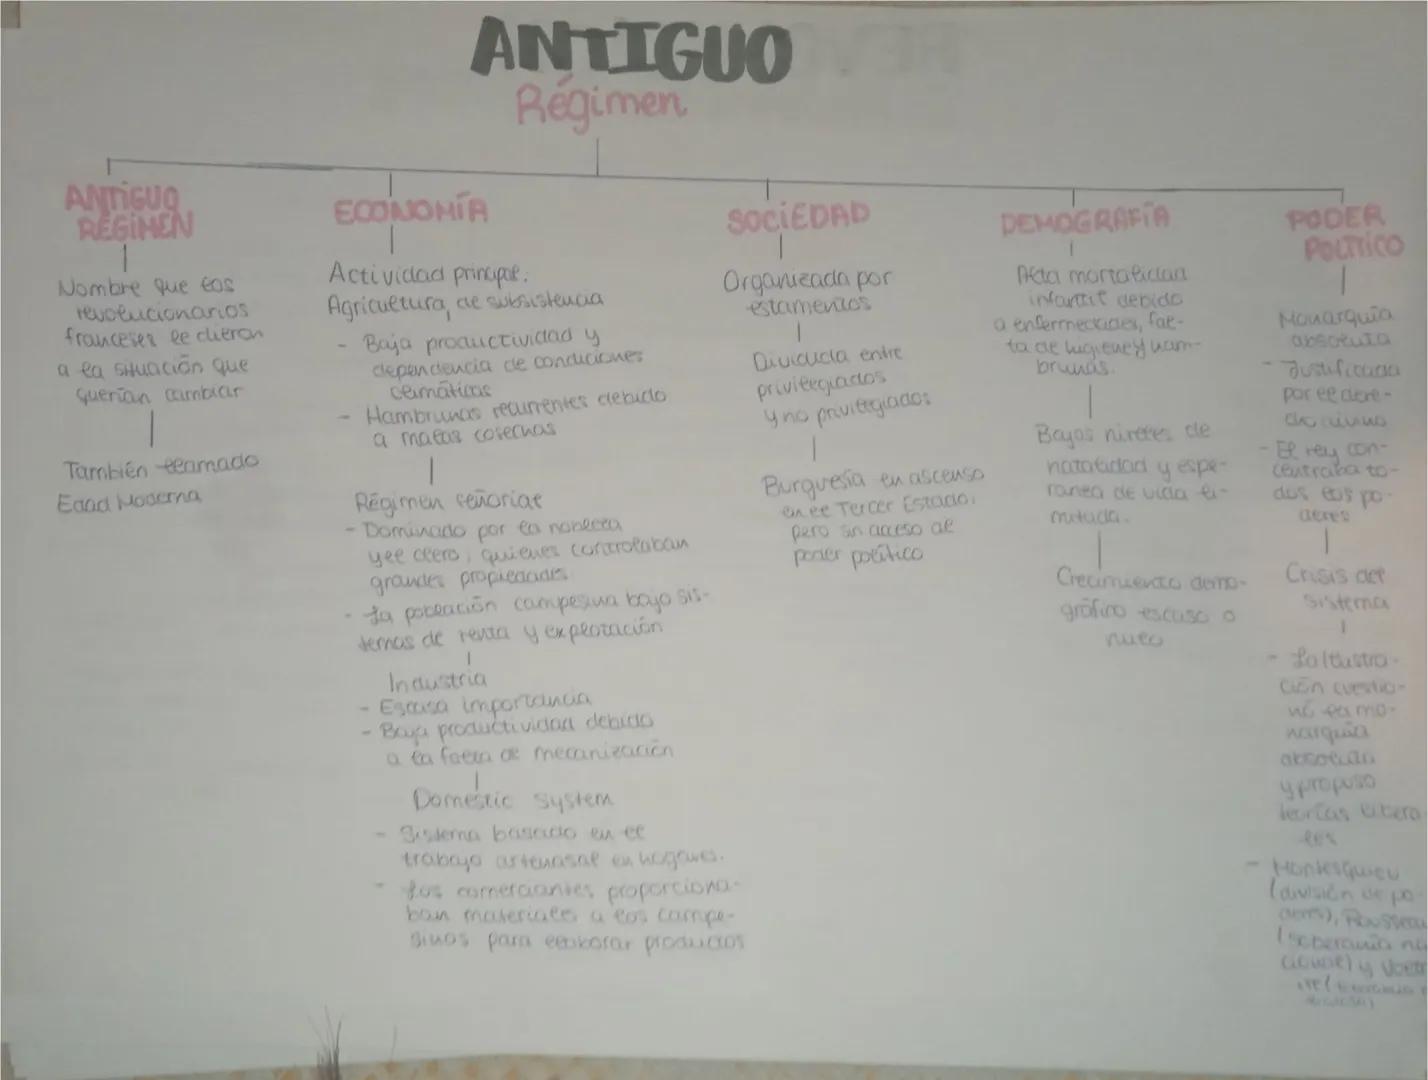 ANTIGUO
Régimen
ANTiGUO
RÉGiMEN
Nombre que los
revolucionarios
franceses le dieron
a la situación que
querían cambiar
También llamado
Edad Moderna
ECONOMÍA
Actividad principal:
Agricultura, de subsistencia
- Baja productividad y
dependencia de condiciones
climáticas
- Hambrunas recurrentes debido
a malas cosechas
Régimen señorial
- Dominado por la nobleza
y el clero, quienes controlaban
grandes propiedades
- La población campesina bajo sis-
temas de renta y explotación
Industria
- Escasa importancia
- Baja productividad debido
a la falta de mecanización
Domestic system
- Sistema basado en el
trabajo artenasal en hogares.
- Los comerciantes proporciona-
ban materiales a los campe-
sinos para elaborar productos
SOCiEDAD
Organizada por
estamentos
Dividida entre
privilegiados
y no privilegiados
Burguesía en ascenso
en el Tercer Estado,
pero sin acceso al
poder político
DEMOGRAFÍA
Alta mortalidad
infantil debido
a enfermedades, fal-
ta de higiene y ham-
brunas.
Bajos niveles de
natalidad y espe-
ranza de vida li-
mitada.
Crecimiento demo-
gráfico escaso o
nulo
PODER
POLÍTICO
Monarquía
absoluta
- Justificada
por el dere-
cho divino
- El rey con-
centraba to-
dos los po-
deres
Crisis del
sistema
- La Ilustra-
ción cuestio-
nó la mo-
narquía
absoluta
y propuso
teorías libera-
les
- Montesquieu
(división de po-
deres), Rousseau
(soberanía na-
cional) y Volta
ire (